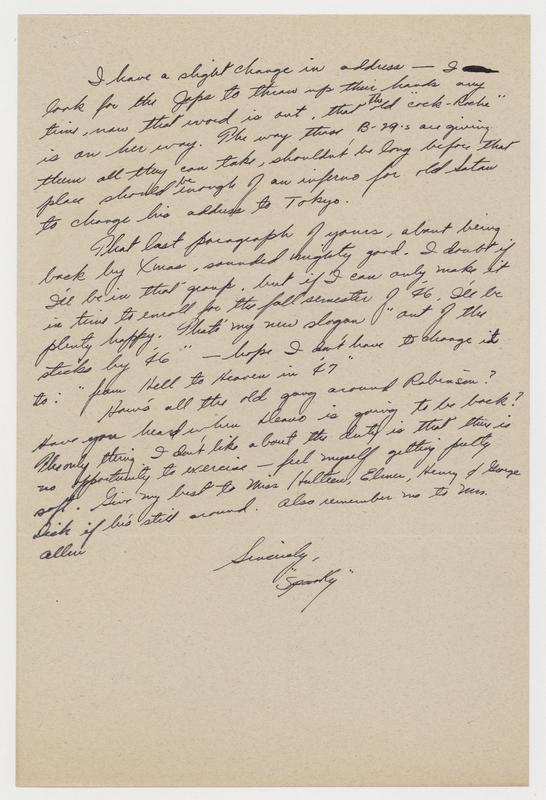 I have a slight change in address — I
look for the Japs to throw up their hands any
time, now that word is out, that the "Old cock-Roche"
is on her way. The way those B-29's are giving
them all they can take, shouldn't be long before that
place should be enough of an inferno for old Satan
to change his address to Tokyo.
That last paragraph of yours, about being
back by Xmas, sounded mighty good. I doubt if
I'll be in that group, but if I can only make it
in time to enroll for the fall semester of '46, I'll be
plenty happy. That's my new slogan "out of the
sticks by 46" — hope I don't have to change it
to: "from Hell to Heaven in 47"
How's all the old gang around Robinson?
Have you heard when Deano is going to be back?
The only thing I don't like about the duty is that there is
no opportunity to exercise — feel myself getting pretty
soft. Give my best to Miss Hulteen, Elmer, Henry & George
Dick if he's still around. Also remember me to Mrs.
Allen
Sincerely,
"Sparky"